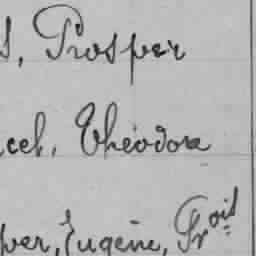 s, Prosper
cel, Théodore
per, Eugène, Frois